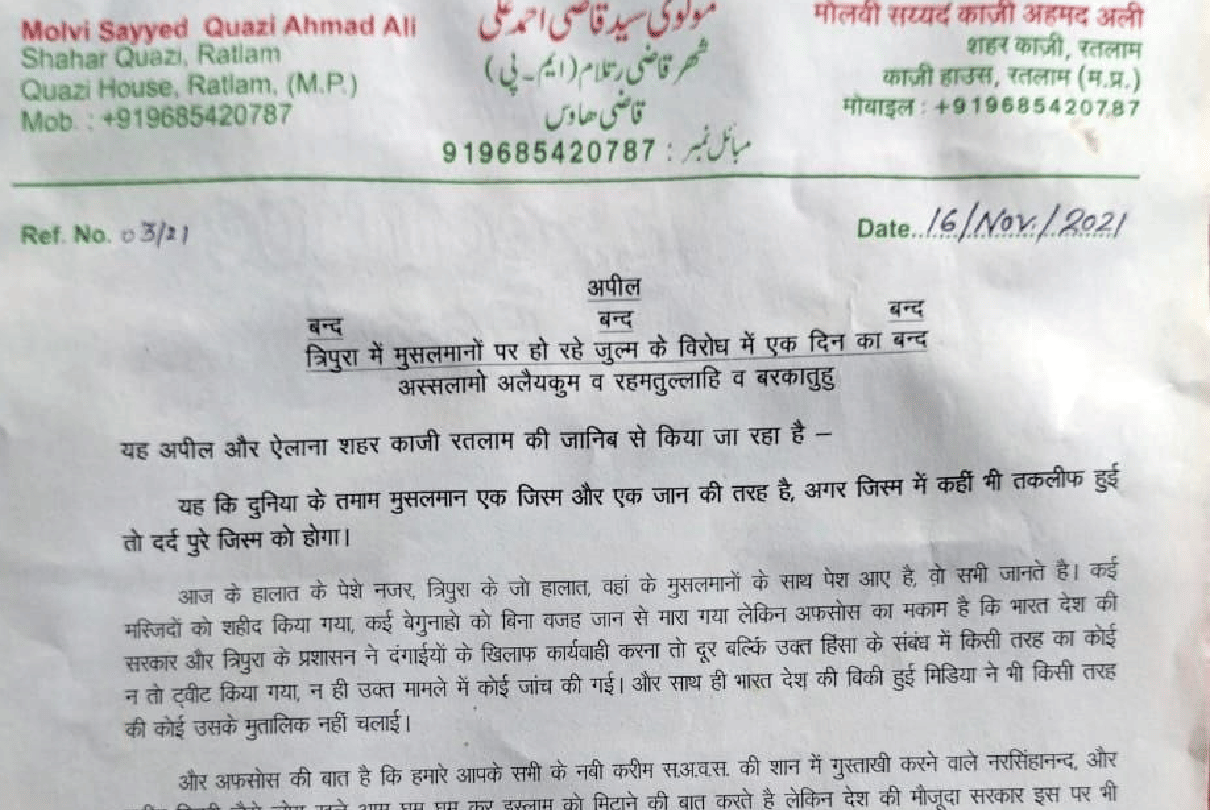 Molvi Sayyed Quazi Ahmad Ali
Shahar Quazi, Ratlam
Quazi House, Ratlam, (M.P.)
Mob. : +919685420787
مولوی سید قاضی احمد علی
شہر قاضی رتلام (ایم-پی)
قاضی ھاوس
مبائل نمبر : 919685420787
मौलवी सय्यद काज़ी अहमद अली
शहर काज़ी, रतलाम
काज़ी हाउस, रतलाम (म.प्र.)
मोबाइल : +919685420787
Ref. No. 03/21
Date. 16/Nov./2021
अपील
बन्द बन्द बन्द
त्रिपुरा में मुसलमानों पर हो रहे जुल्म के विरोध में एक दिन का बन्द
अस्सलामो अलैयकुम व रहमतुल्लाहि व बरकातुहु
यह अपील और ऐलाना शहर काजी रतलाम की जानिब से किया जा रहा है –
यह कि दुनिया के तमाम मुसलमान एक जिस्म और एक जान की तरह है, अगर जिस्म में कहीं भी तकलीफ हुई
तो दर्द पुरे जिस्म को होगा।
आज के हालात के पेशे नजर, त्रिपुरा के जो हालात, वहां के मुसलमानों के साथ पेश आए है, वो सभी जानते है। कई
मस्जिदों को शहीद किया गया, कई बेगुनाहो को बिना वजह जान से मारा गया लेकिन अफसोस का मकाम है कि भारत देश की
सरकार और त्रिपुरा के प्रशासन ने दंगाईयों के खिलाफ कार्यवाही करना तो दूर बल्कि उक्त हिंसा के संबंध में किसी तरह का कोई
न तो ट्वीट किया गया, न ही उक्त मामले में कोई जांच की गई। और साथ ही भारत देश की बिकी हुई मिडिया ने भी किसी तरह
की कोई उसके मुतालिक नहीं चलाई।
और अफसोस की बात है कि हमारे आपके सभी के नबी करीम स.अ.व.स. की शान में गुस्ताखी करने वाले नरसिंहानन्द, और
घुम घुम कर इस्लाम को मिटाने की बात करते है लेकिन देश की मौजूदा सरकार इस पर भी